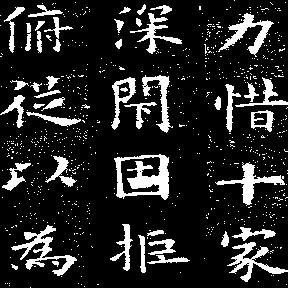 力惜十家
深閇固拒
俯從以為